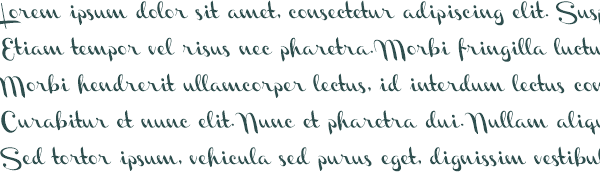 Lorem ipsum dolor sit amet, consectetur adipiscing elit. Susp
Etiam tempor vel risus nec pharetra. Morbi fringilla luctu
Morbi hendrerit ullamcorper lectus, id interdum lectus con
Curabitur et nunc elit. Nunc et pharetra dui. Nullam aliqu
Sed tortor ipsum, vehicula sed purus eget, dignissim vestibul